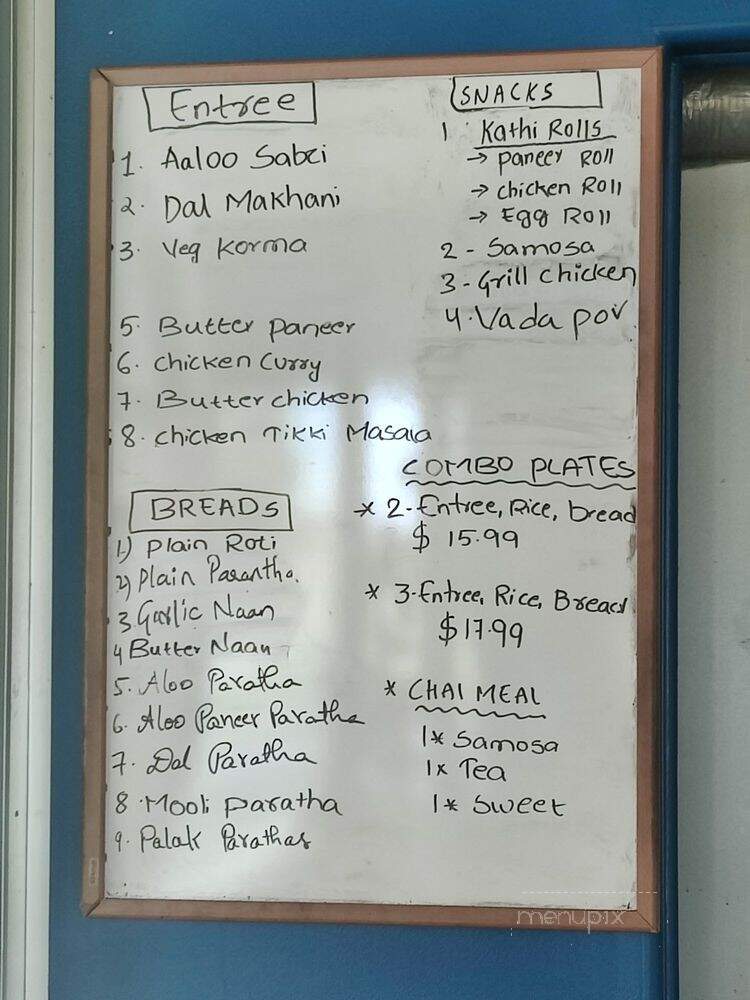 Entree
1. Aaloo Sabzi
2. Dal Makhani
3. Veg Korma
5. Butter Paneer
6. Chicken Curry
7. Butter chicken
8. Chicken Tikki Masala
BREADS
1) Plain Roti
2) Plain Parantha.
3. Garlic Naan
4 Butter Naan
5. Aloo Paratha
6. Aloo Paneer Paratha
7. Dal Paratha
8. Mooli Paratha
9. Palak Parathas
SNACKS
1 Kathi Rolls
→ Paneer Roll
→ chicken Roll
→ Egg Roll
2 - Samosa
3 - Grill chicken
4. Vada pov
COMBO PLATES
* 2-Entree, Rice, bread
$ 15.99
* 3-Entree, Rice, Bread
$17.99
* CHAI MEAL
1* Samosa
1x Tea
1* Sweet
menupix